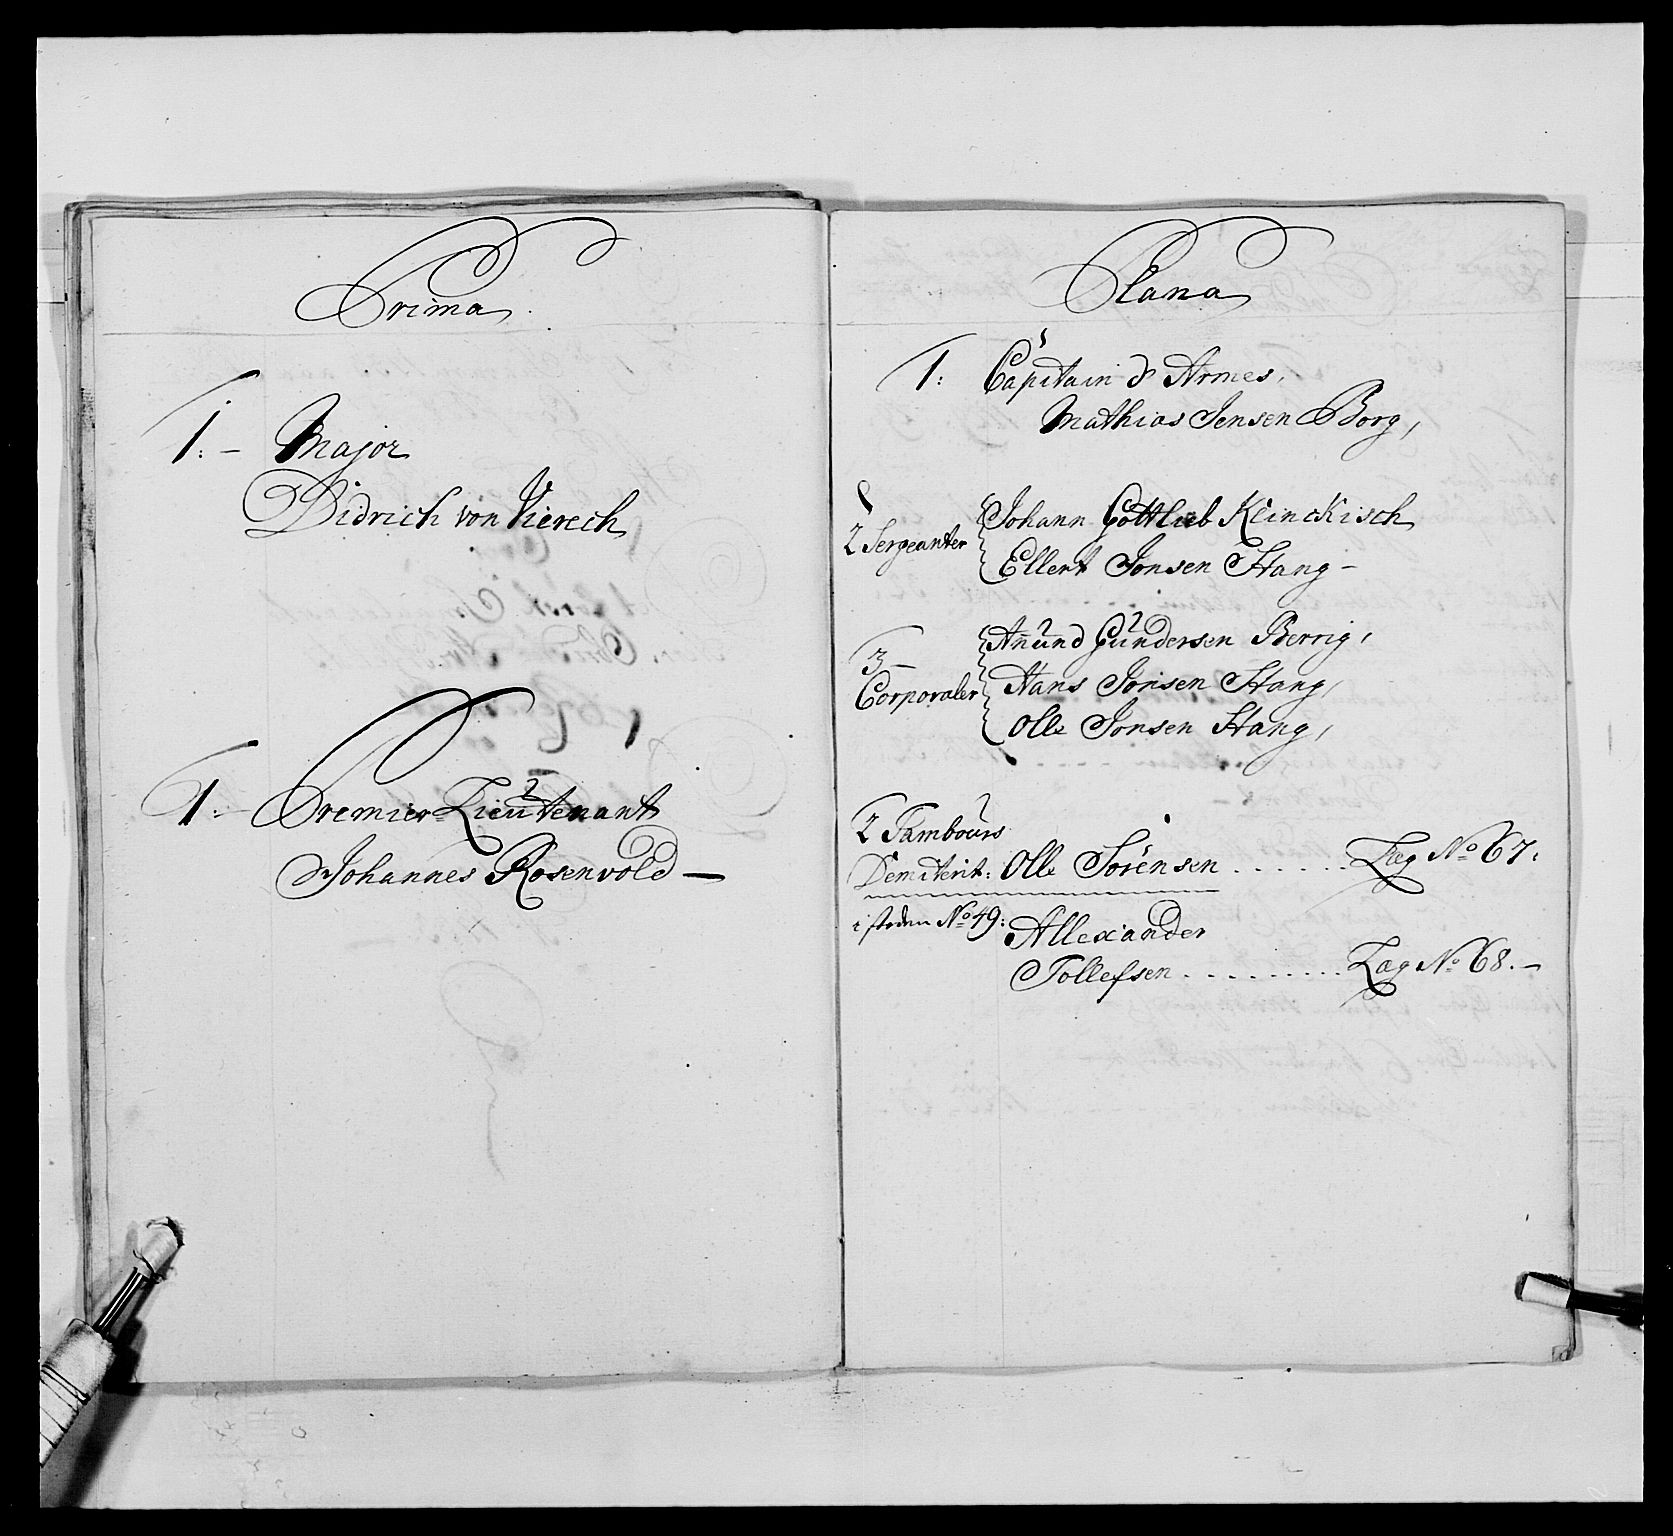 Prima
1: - Major
Didrich von Viereck
1: - Premier Lieutenant
Johannes Rosenvold -
Plana
1: Capitain d' Armes,
Mathias Jensen Borg,
2 Sergeanter
Johann Gottlieb Klinckisch
Ellert Jonsen Stang -
3 -
Corporaler
Anund Gundersen Berrig,
Hans Jonsen Stang,
Olle Jonsen Stang,
2 Tambours
Demiterit: Olle Sörensen . . . . . . Læg No 67:
i steden No 49: Allexander
Tollefsen . . . . . . . . . Læg No 68. -